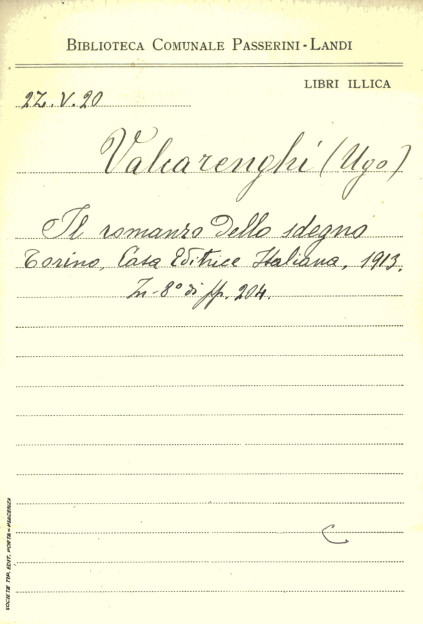 BIBLIOTECA COMUNALE PASSERINI-LANDI
LIBRI ILLICA
2Z.V.20
Valcarenghi (Ugo)
Il romanzo dello sdegno
Torino, Casa Editrice Italiana, 1913.
In-8° di pp. 204.
SOCIETÀ TIP. EDIT. PORTA - PIACENZA